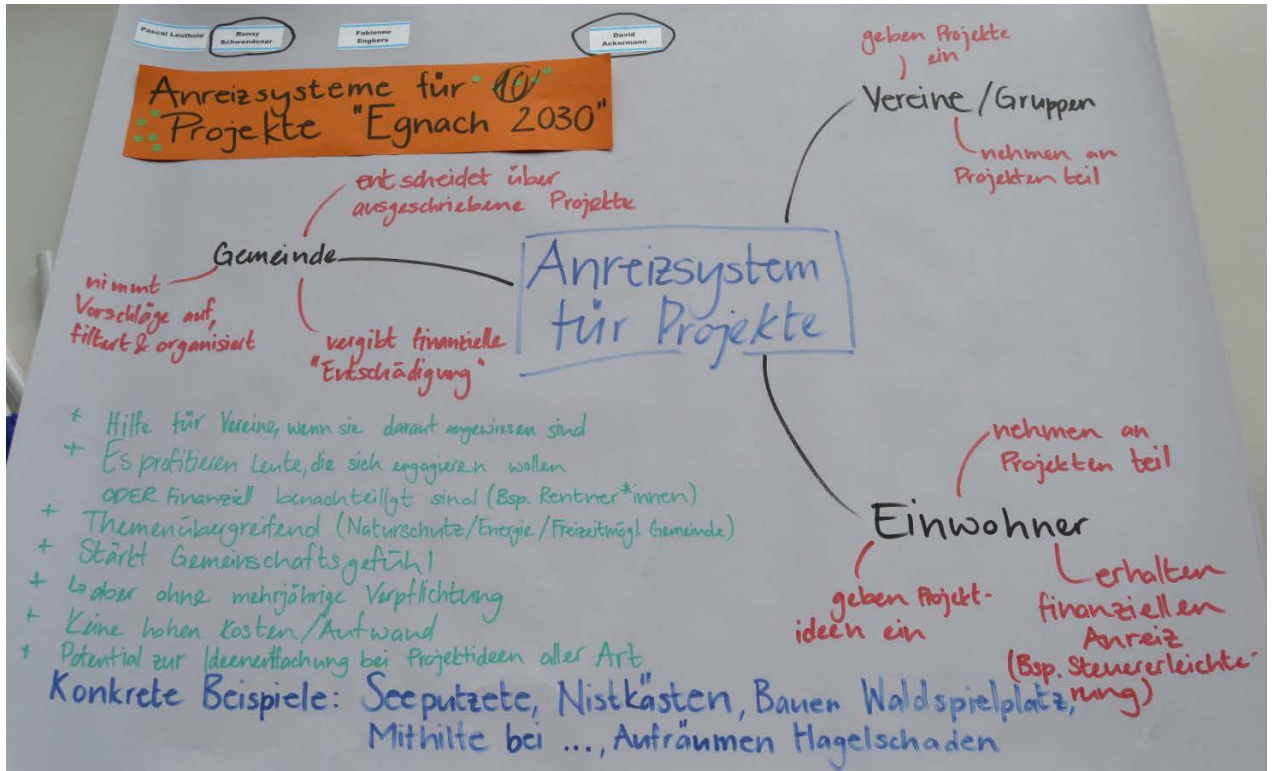 Pascal Leuthold
Ronny
Schwendener
Fabienne
Engbers
David
Ackermann
Anreizsysteme für 10
Projekte "Egnach 2030"
geben Projekte
ein
Vereine/Gruppen
nehmen an
Projekten teil
entscheidet über
ausgeschriebene Projekte
Gemeinde
nimmt
Vorschläge auf,
filtert & organisiert
vergibt finanzielle
"Entschädigung"
Anreizsystem
für Projekte
nehmen an
Projekten teil
Einwohner
geben Projekt-
ideen ein
erhalten
finanziellen
Anreiz
(Bsp. Steuererleichte-
rung)
+ Hilfe für Vereine, wenn sie darauf angewiesen sind
+ Es profitieren Leute, die sich engagieren wollen
ODER Finanziell benachteiligt sind (Bsp. Rentner*innen)
+ Themenübergreifend (Naturschutz/Energie/Freizeitmögl. Gemeinde)
+ Stärkt Gemeinschaftsgefühl
+ ↳ aber ohne mehrjährige Verpflichtung
+ Keine hohen Kosten/Aufwand
+ Potential zur Ideenentfachung bei Projektideen aller Art
Konkrete Beispiele: Seeputzete, Nistkästen, Bauen Waldspielplatz,
Mithilfe bei ..., Aufräumen Hagelschaden